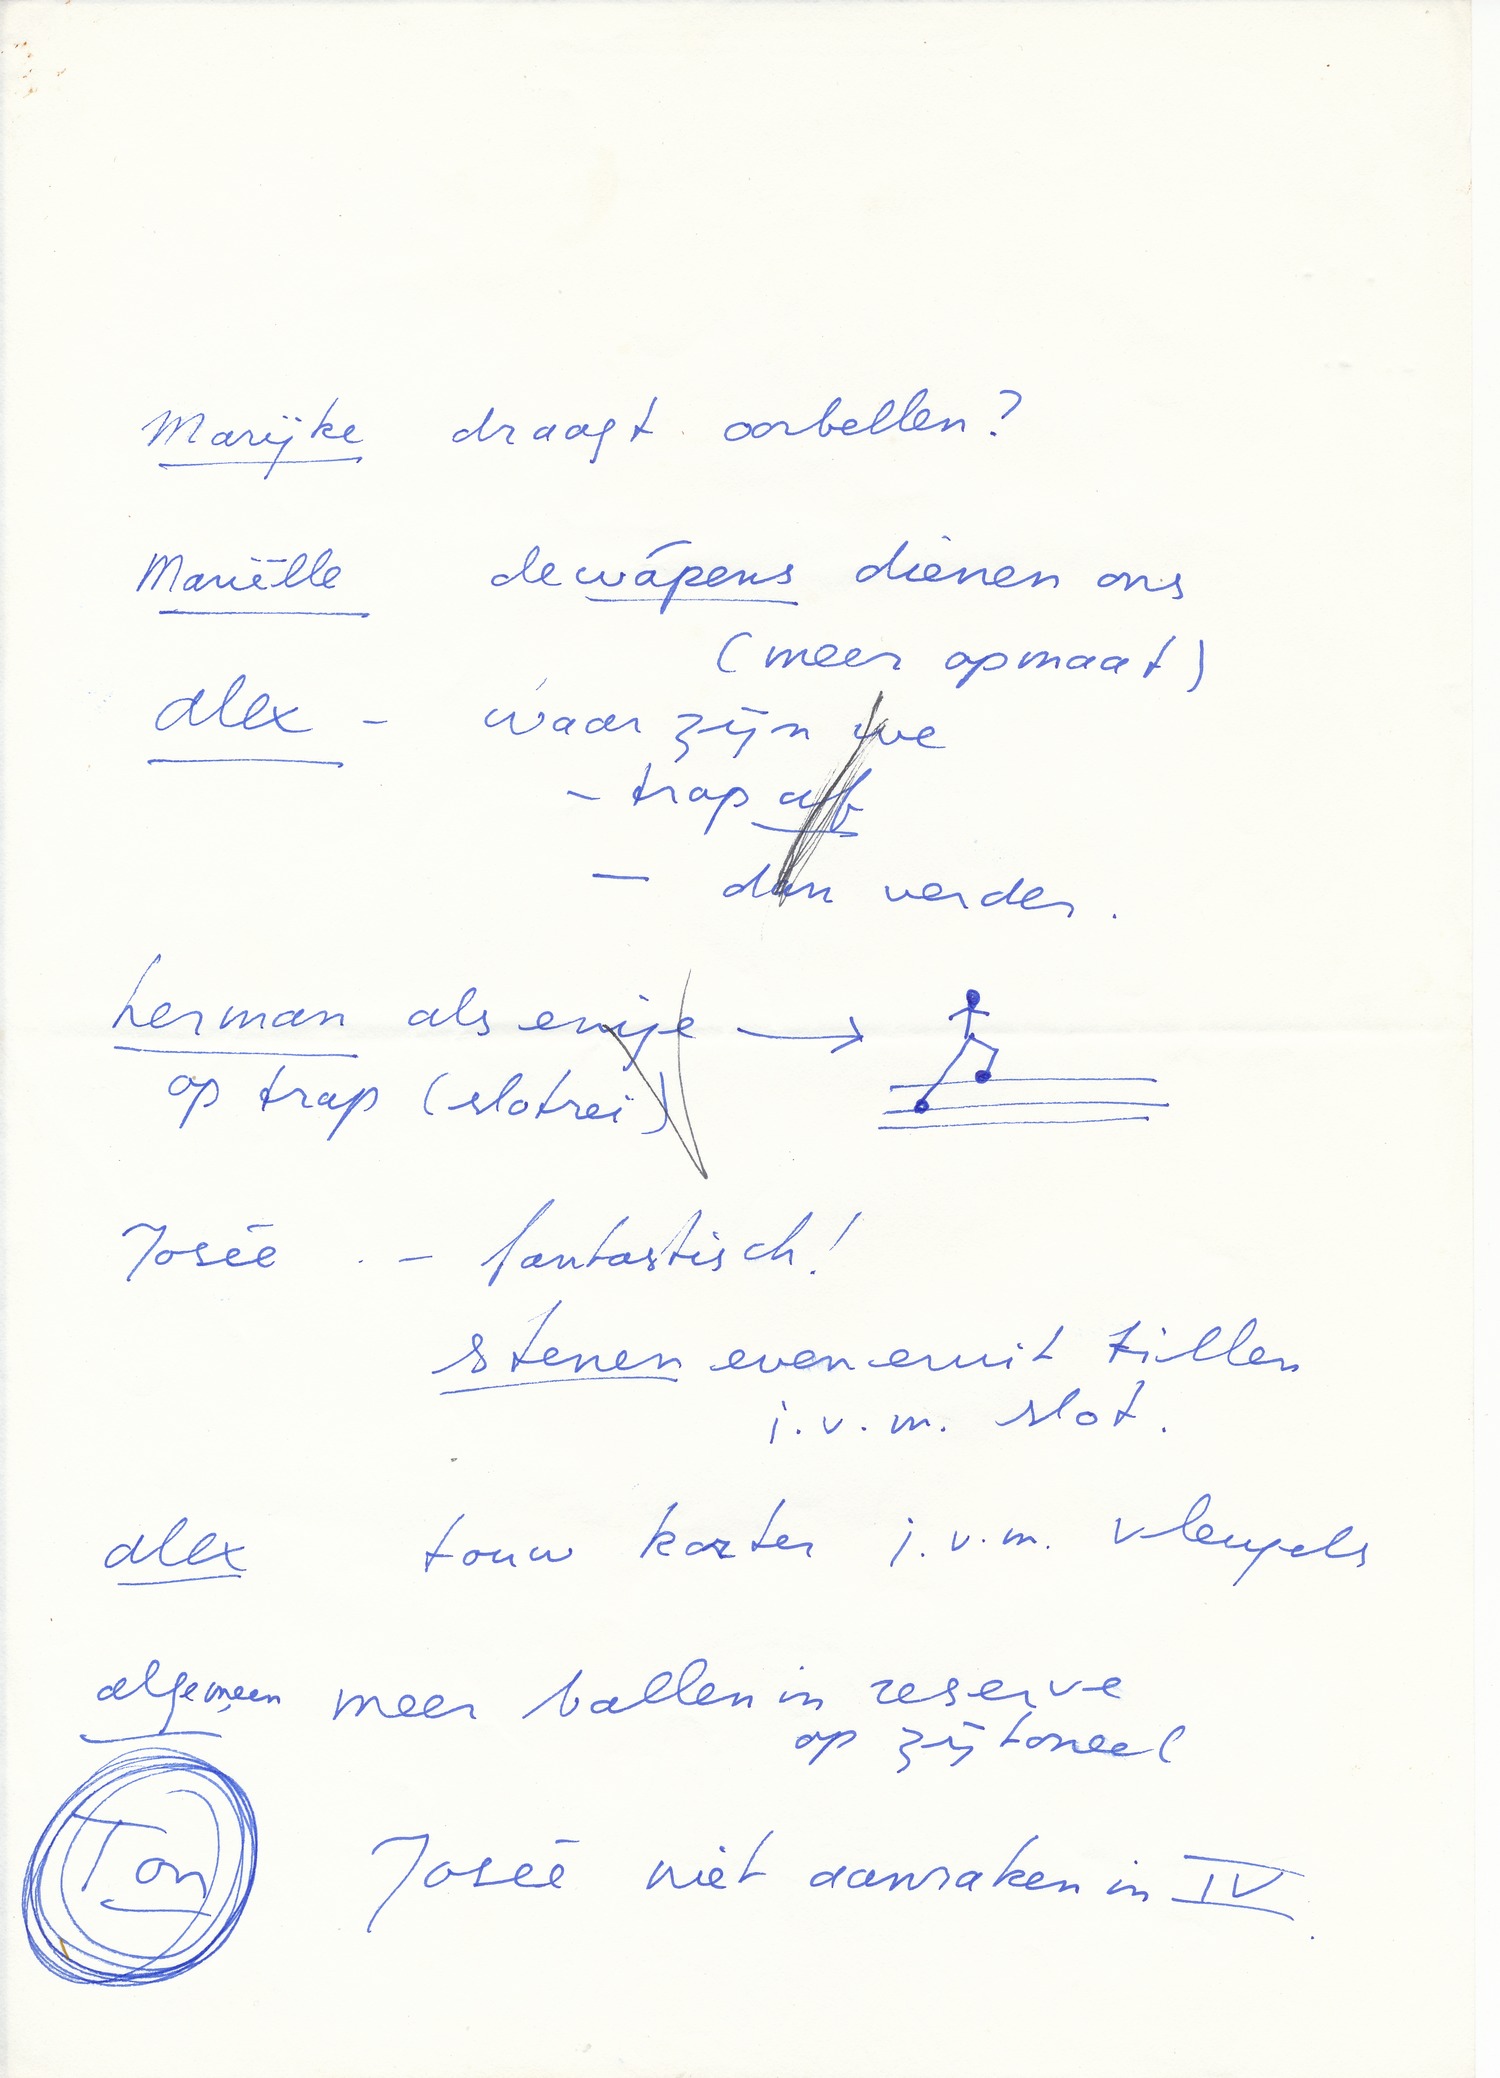 Marijke draagt oorbellen?
Mariëlle de wápens dienen ons
(meer opmaat)
Alex - waar zijn we
- trap af
- dan verder.
herman als enige →
op trap (slotrei)
Josée - fantastisch!
stenen even eruit tillen
i.v.m. slot.
Alex touw korter i.v.m. vleugels
algemeen meer ballen in reserve
op zijtoneel
Ton Josée niet aanraken in IV.